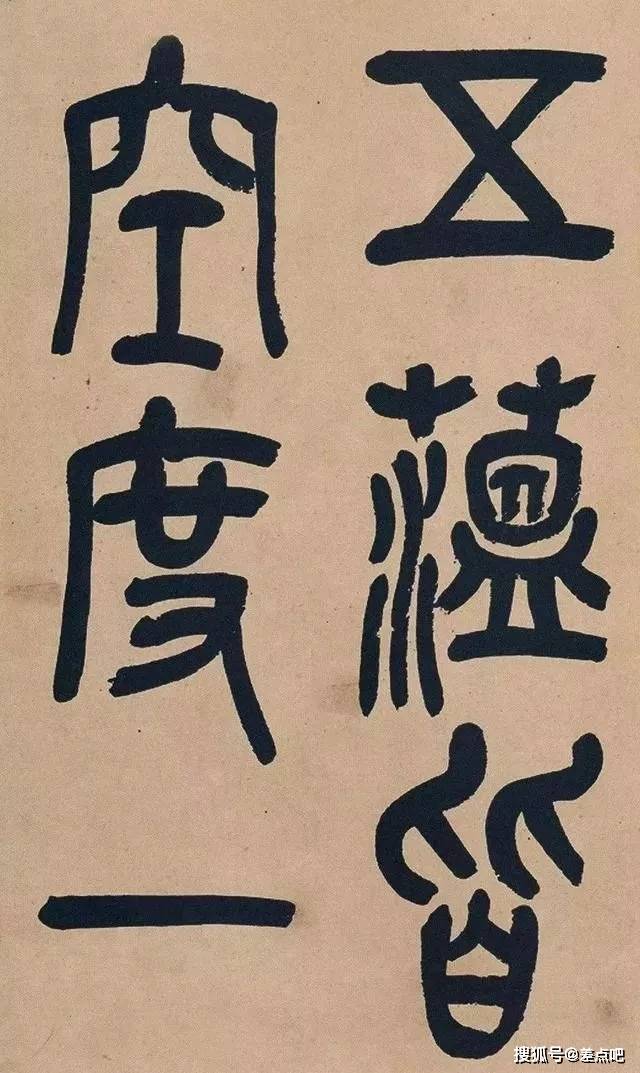 五蕰皆
空度一
搜狐号@差点吧